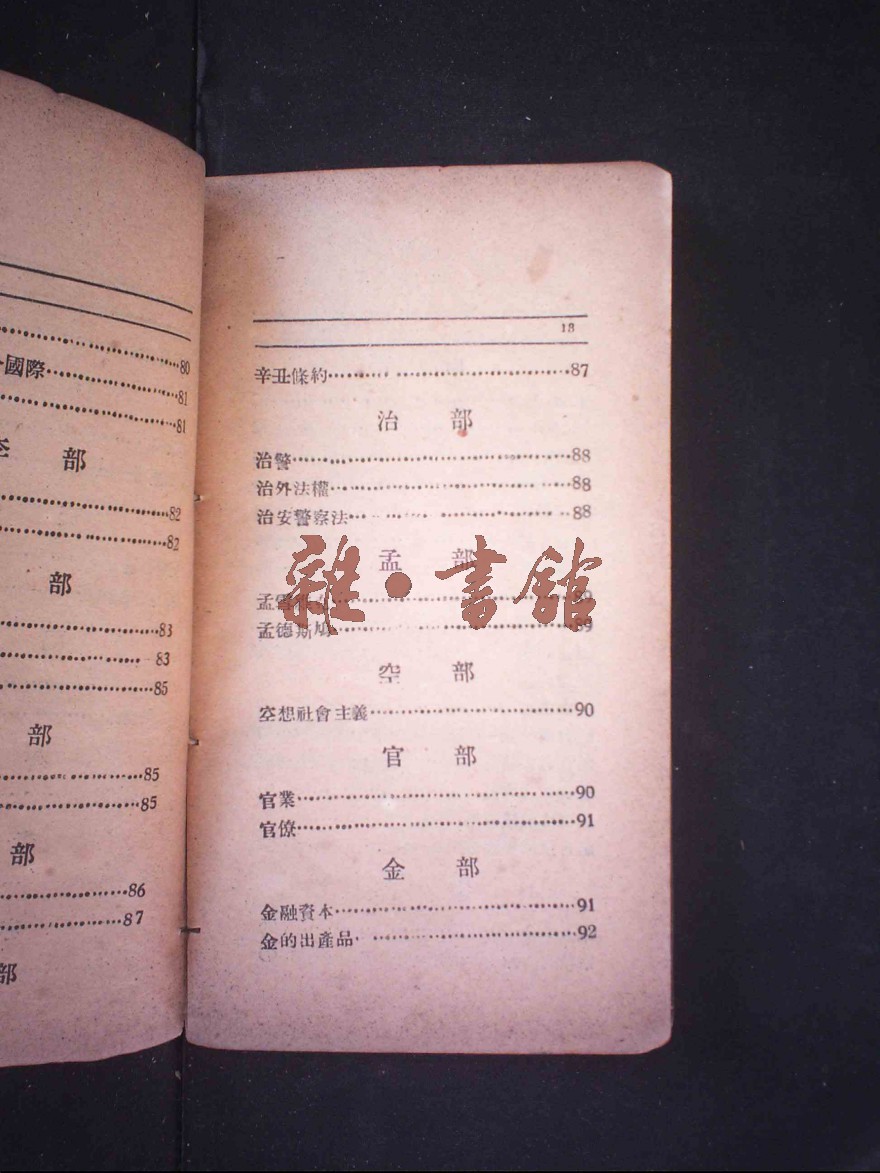 80
國際 81
81
部
82
82
部
83
83
85
部
85
85
部
86
87
部
18
辛丑條約 87
治 部
治警 88
治外法權 88
治安警察法 88
孟 部
孟 89
孟德斯鳩 89
空 部
空想社會主義 90
官 部
官業 90
官僚 91
金 部
金融資本 91
金的出產品 92
雜·書館